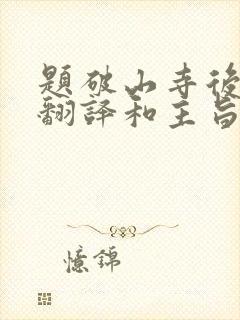 題破山寺後
翻譯和主旨
憶錦